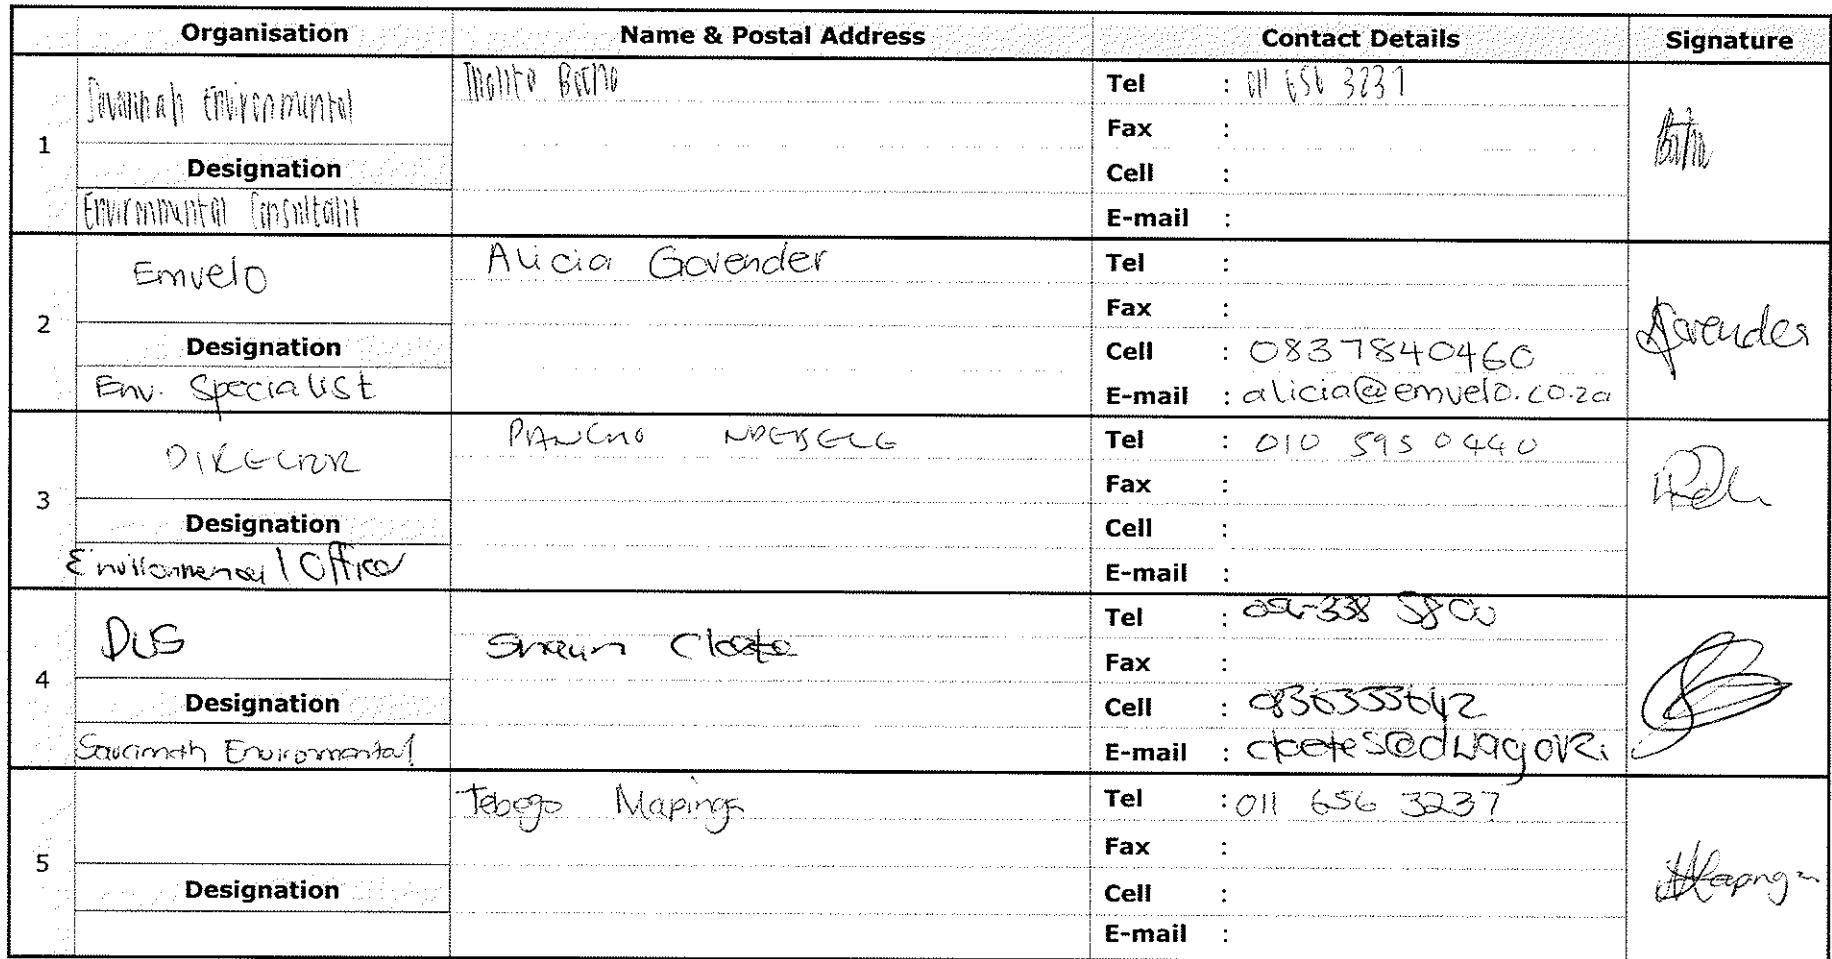 Organisation Name & Postal Address Contact Details Signature
1
Savannah Environmental
Designation
Environmental Consultant
Botha
Tel : 011 656 3237
Fax :
Cell :
E-mail :
2
Emvelo
Designation
Env. Specialist
Alicia Govender
Tel :
Fax :
Cell : 0837840460
E-mail : alicia@emvelo.co.za
Govender
3
DIRECTOR
Designation
Environmental Officer
PANCHO NDEBELE
Tel : 010 595 0440
Fax :
Cell :
E-mail :
4
Designation
Savannah Environmental
Shaun Cloete
Tel :
Fax :
Cell :
E-mail :
5
Designation
Tebogo Mapinga
Tel : 011 656 3237
Fax :
Cell :
E-mail :
Mapinga